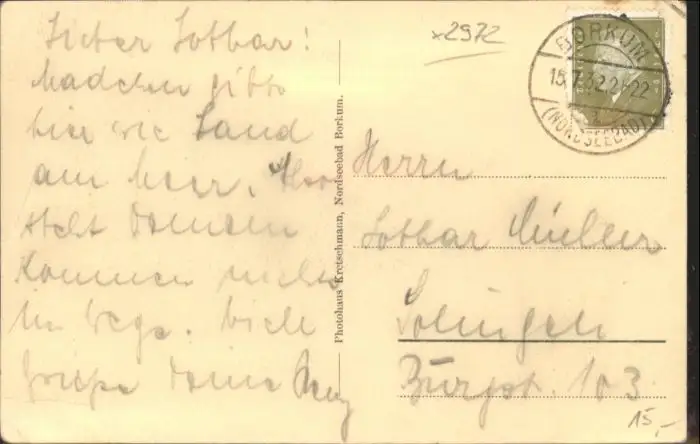 Lieber Lothar!
Mädchen gibts
hier wie Sand
am Meer. Also
steht Deinem
Kommen nichts
im Wege. Viele
Grüße Deine
x2972
BORKUM
15.7.32.21-22
(NORDSEEBAD)
Photohaus Kretschmann, Nordseebad Borkum.
Herrn
Lothar Müller
Solingen
Burgst. 103
15,-